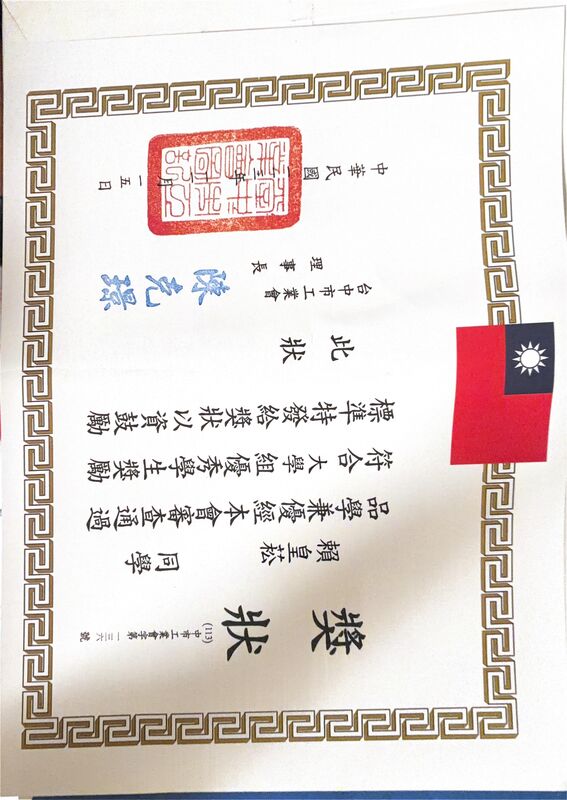 獎狀
(113)中市工業會字第一三六號
賴皇菘 同學
品學兼優經本會審查通過
符合大學組優秀學生獎勵
標準特發給獎狀以資鼓勵
此狀
台中市工業會
理事長 陳克璟
中華民國 年 月一五日